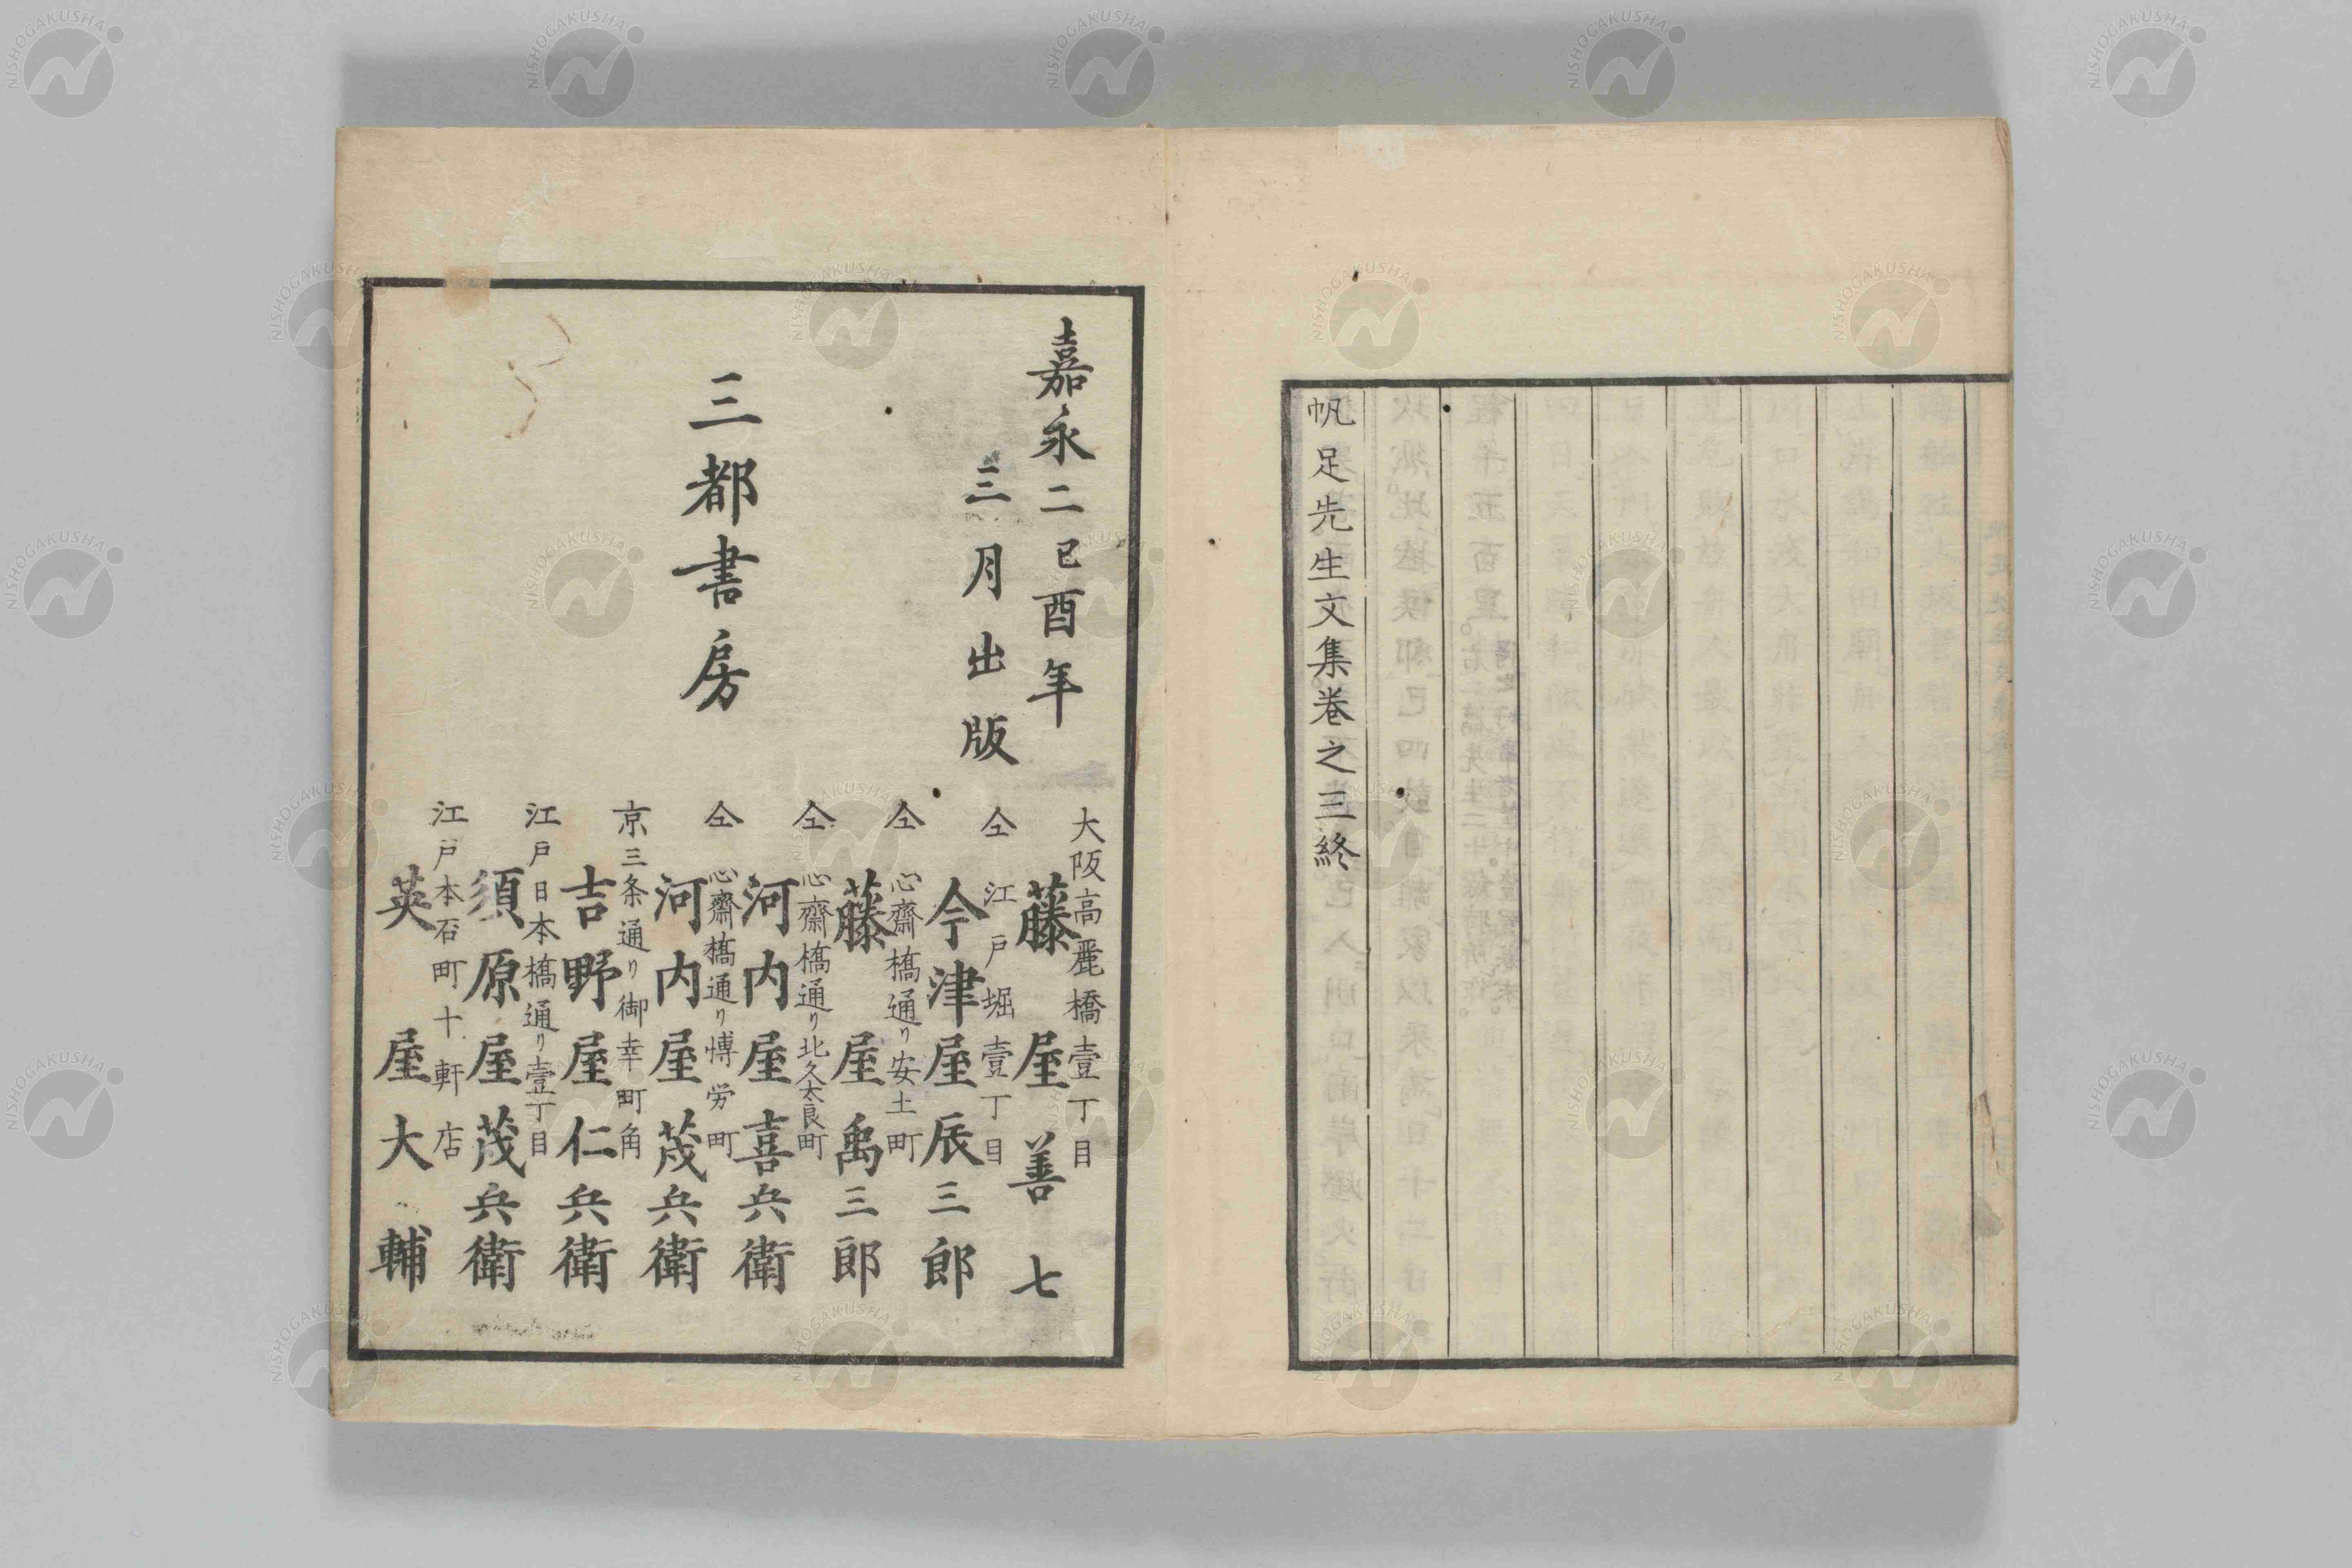 帆足先生文集巻之三終
嘉永二己酉年
三月出版
三都書房
大阪高麗橋壹丁目
藤屋善七
仝江戸堀壹丁目
今津屋辰三郎
仝心齋橋通り安土町
藤屋禹三郎
仝心齋橋通り北久太良町
河内屋喜兵衛
仝心齋橋通り博労町
河内屋茂兵衛
京三条通り御幸町角
吉野屋仁兵衛
江戸日本橋通り壹丁目
須原屋茂兵衛
江戸本石町十軒店
英屋大輔
NISHOGAKUSHA